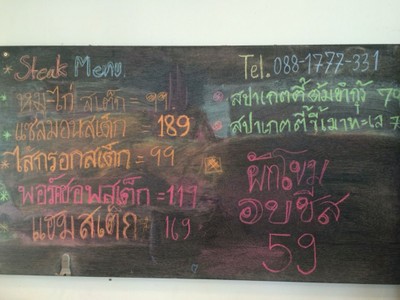 Steak Menu
หมู-ไก่ สเต็ก = 99
แซลมอนสเต็ก = 189
ไส้กรอกสเต็ก = 99
พอร์คชอพสเต็ก = 119
แฮมสเต็ก 169
Tel. 088-1777-331
สปาเกตตี้ต้มยำกุ้ง 79
สปาเกตตี้ขี้เมาทะเล 7
ผักโขม
อบชีส
59